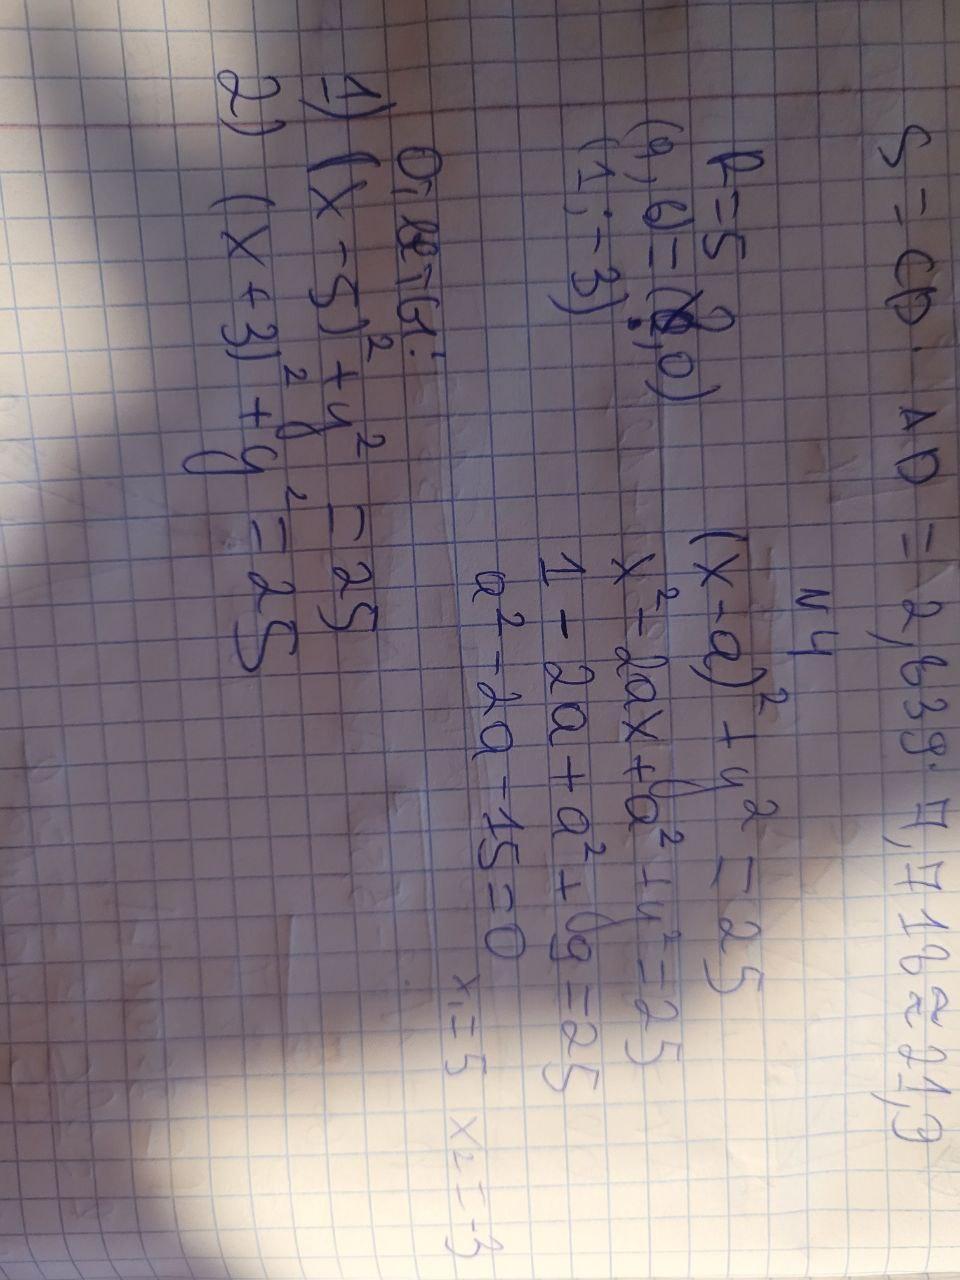 S = CD · AD = 2,839 · 7,718 ≈ 21,9
N4
R = 5
(x - a)² + y² = 25
(a, b) = (?, 0)
x² - 2ax + a² + y² = 25
(1; -3)
1 - 2a + a² + 9 = 25
a² - 2a - 15 = 0
x₁ = 5 x₂ = -3
Ответ:
1) (x - 5)² + y² = 25
2) (x + 3)² + y² = 25